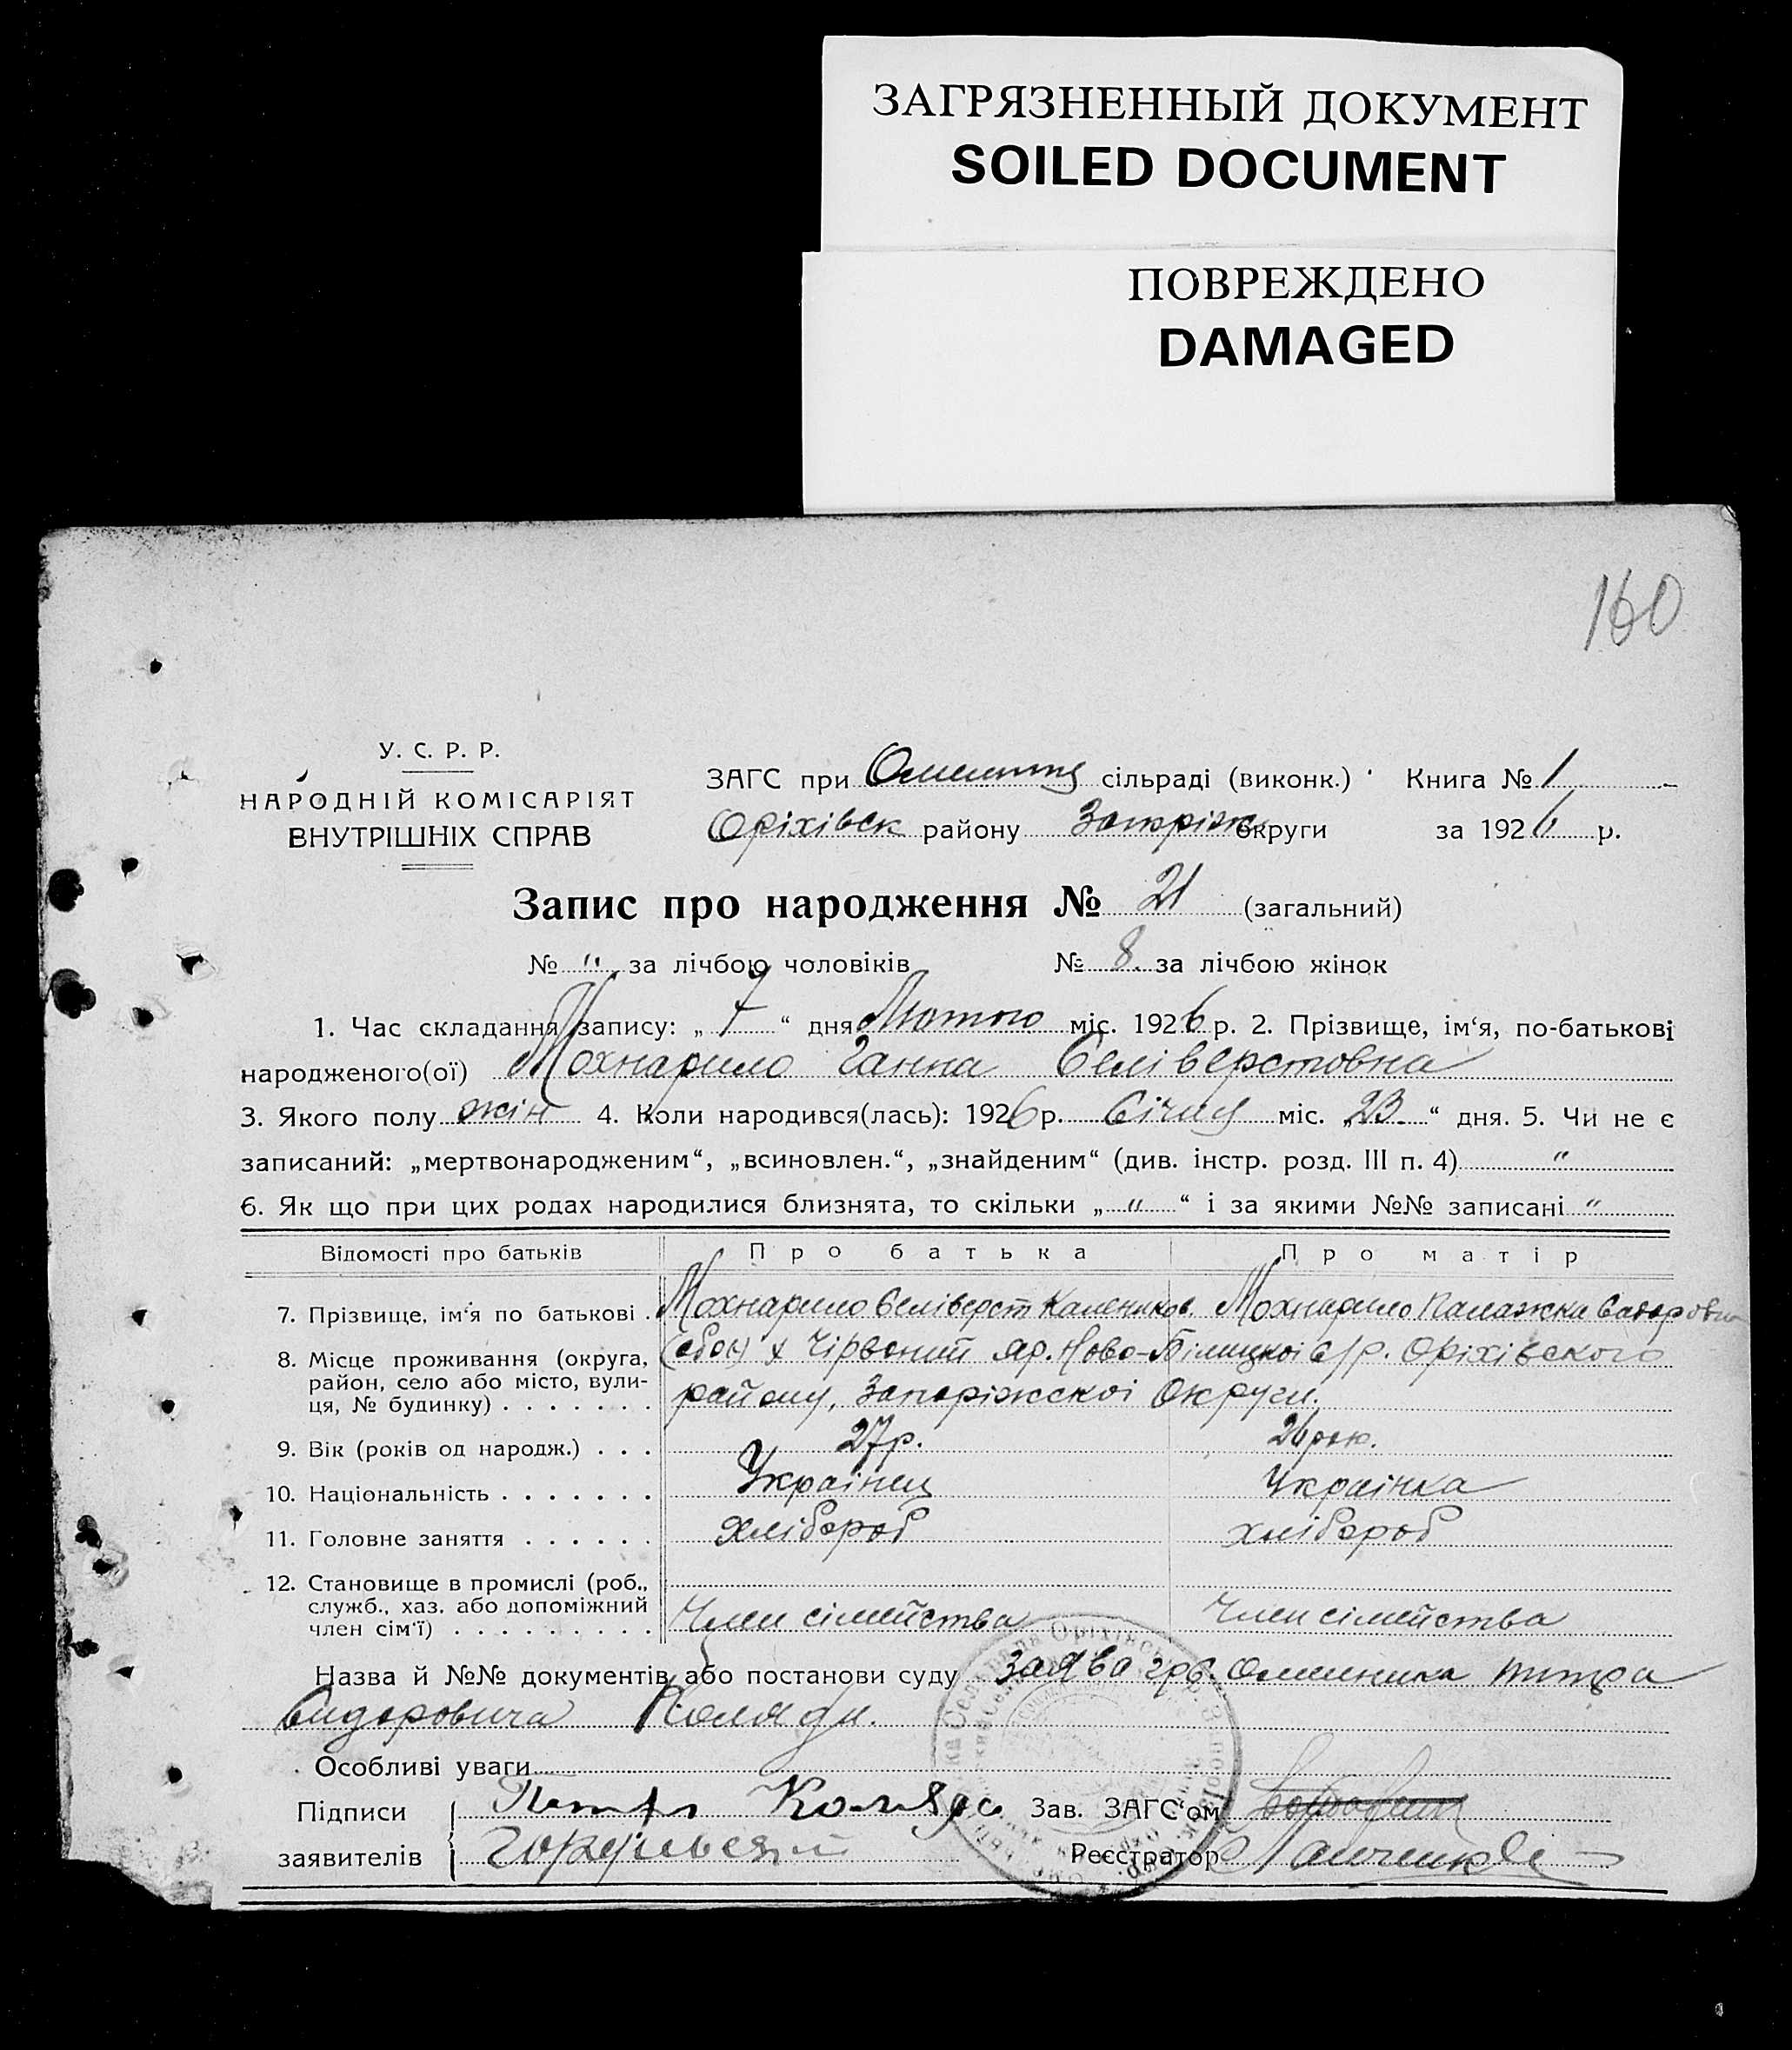 ЗАГРЯЗНЕННЫЙ ДОКУМЕНТ
SOILED DOCUMENT
ПОВРЕЖДЕНО
DAMAGED
160
У. С. Р. Р.
НАРОДНІЙ КОМІСАРІЯТ
ВНУТРІШНІХ СПРАВ
ЗАГС при сільраді (виконк.) Книга № 1
Оріхівськ району Запоріж округи за 1926 р.
Запис про народження № 21 (загальний)
№ " за лічбою чоловіків № 8 за лічбою жінок
1. Час складання запису: „ 7 “ дня Лютого міс. 1926 р. 2. Прізвище, ім‘я, по-батькові
народженого(ої) Мохнарило Ганна Селіверстовна
3. Якого полу жін 4. Коли народився(лась): 1926 р. Січня міс. „23“ дня. 5. Чи не є
записаний: „мертвонародженим“, „всиновлен.“, „знайденим“ (див. інстр. розд. III п. 4) "
6. Як що при цих родах народилися близнята, то скільки „ " “ і за якими №№ записані "
Відомості про батьків Про батька Про матір
7. Прізвище, ім‘я по батькові . Мохнарило Селіверст Калеников. Мохнарило Палажка
8. Місце проживання (округа, район, село або місто, вулиця, № будинку) . . . . . . .
х Чірвоний Яр. Ново-Білицкоі С/р. Оріхівского
району, Запоріжскоі Округи.
9. Вік (років од народж.) . . . 27р. 26 рок.
10. Національність . . . . . . . Українец Українка
11. Головне заняття . . . . . . хлібороб хлібороб
12. Становище в промислі (роб., служб., хаз. або допоміжний член сім‘ї) . . . . . . . . . Член сімейства Член сімейства
Назва й №№ документів або постанови суду Заява гр. Петра
Сидоровича Коляди.
Особливі уваги
Підписи Петро Коляда Зав. ЗАГС‘ом
заявителів Реєстратор